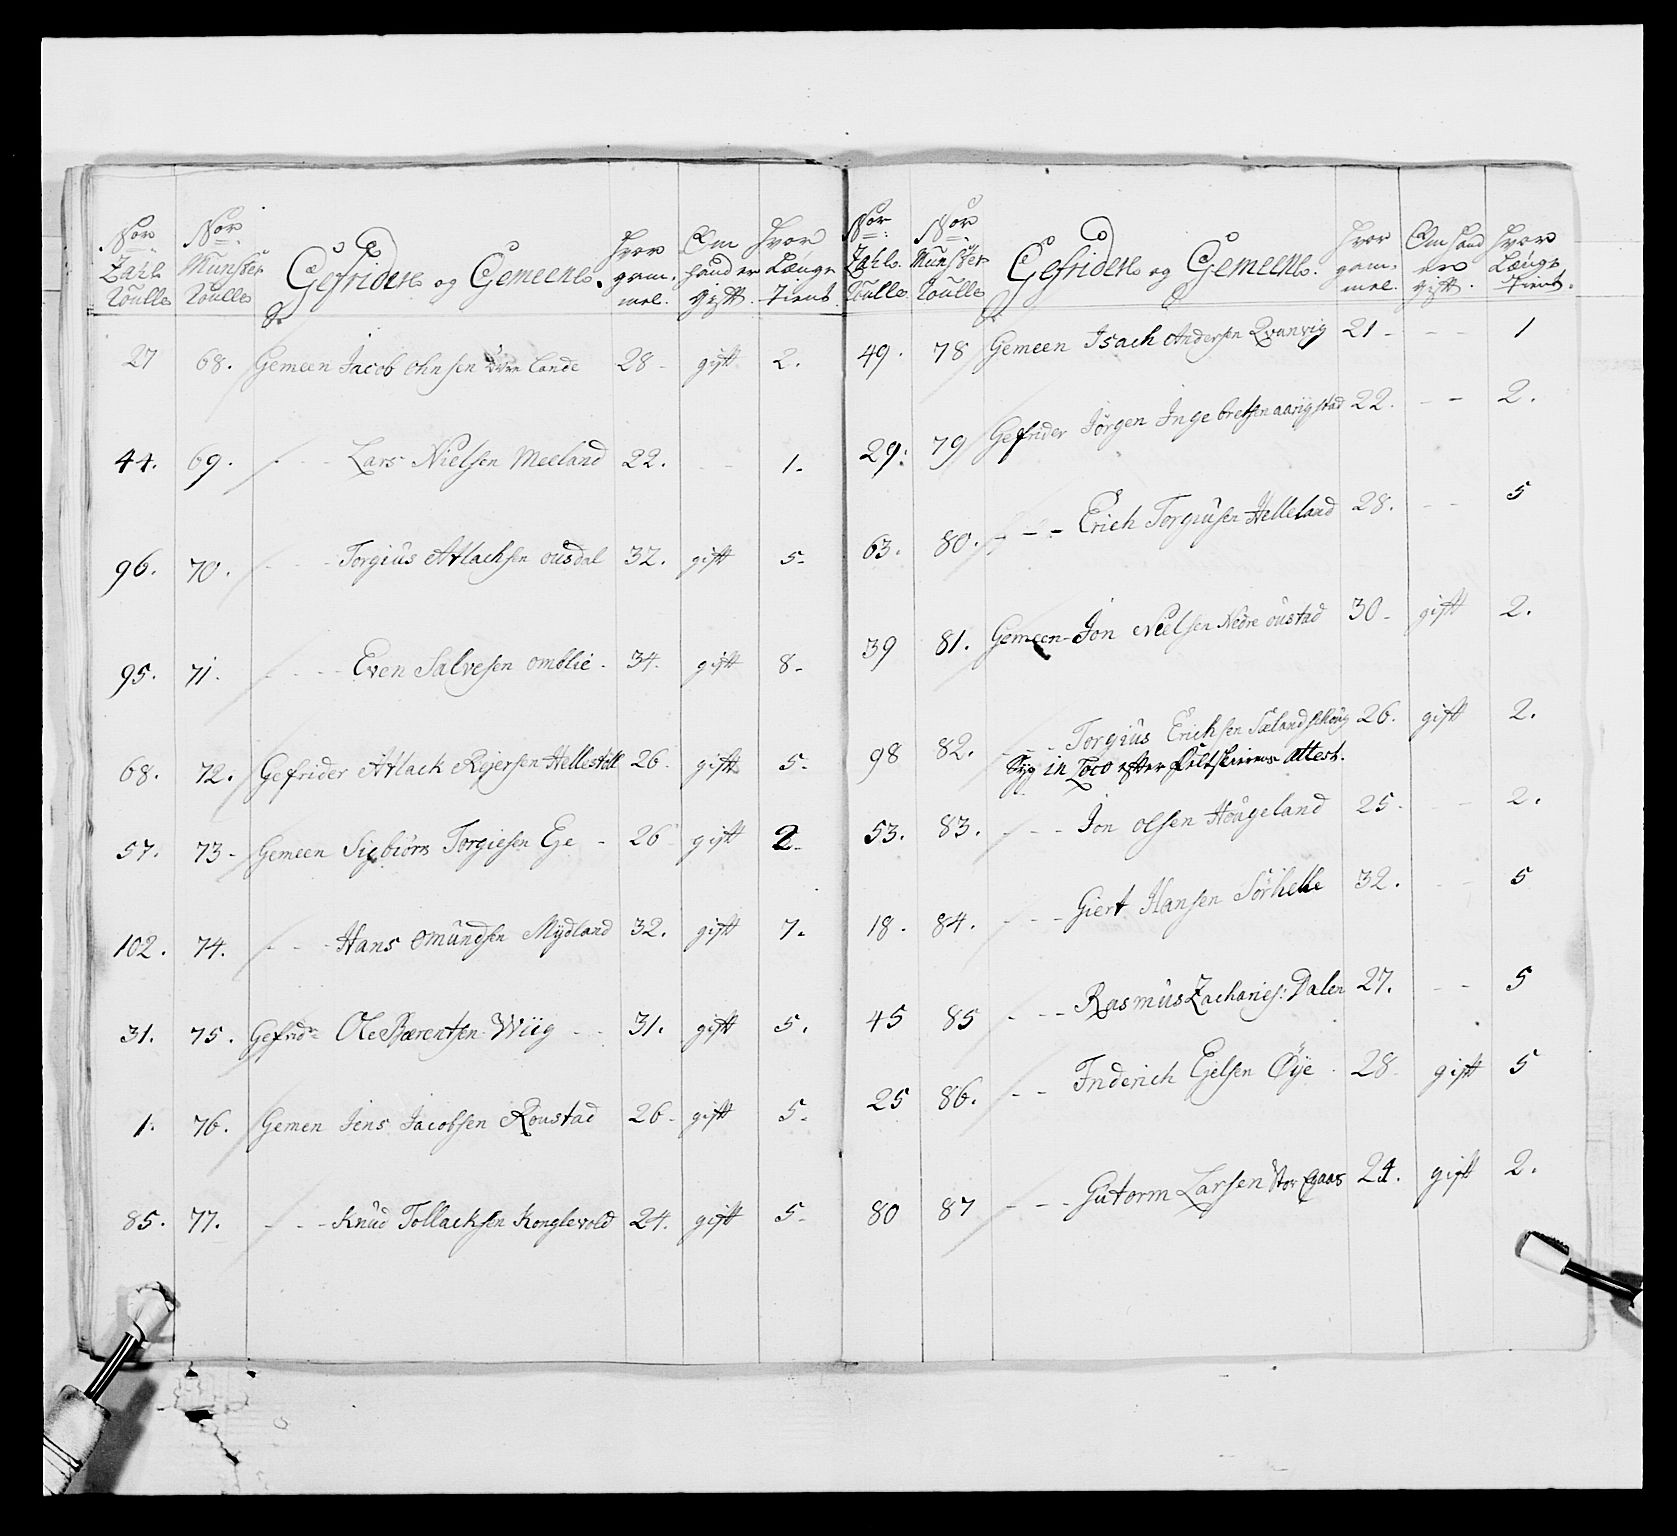 Nor Zahl Roulle | Nor Munster Roulle | Gefridere og Gemeene. | Hvor gam- mel. | Om hand er gift. | Hvor Længe tient.
27 68. Gemeen Jacob Ohnsen Lande 28 - gift 2.
44. 69. - - - Lars Nielsen Meeland 22. - - 1.
96. 70. - - - Torgius Atlachsen ousdal 32. gift 5-
95. 71. - - - Even Salvesen omblie - 34. gift 8-
68. 72. Gefrider Atlack Rejersen Hellestöll 26. gift 5-
57. 73- Gemeen Sigbiörn Torgiesen Eje - 26 gift 2-
102. 74. - - - Hans Omundsen Mydland 32. gift 7.
31. 75. Gefridr Ole Bærentsen Wiig - - 31. gift 5.
1. 76. Gemen Jens Jacobsen Roustad 26- gift 5-
85. 77. - - - Knud Tollacksen Konglevold 24. gift 5-
Nor Zahl Roulle | Nor Munster Roulle | Gefridere og Gemeene. | Hvor gam- mel. | Om hand er gift. | Hvor Længe tient.
49. 78 Gemeen Isach Andersen Qvanvig 21 - - - 1
29. 79 Gefrider Jörgen Ingebretsen aarigstad 22. - - 2.
63. 80. - - - Erich Torgiusen Helleland 28. - - 5
39 81. Gemeen - Jon Nielsen Nedre oustad 30 - gift 2.
98 82. - - - Torgius Erichsen Sælandschoug 26. gift 2.
Syg in Loco efter Feltskierens Attest.
53. 83. - - - Jon Olsen Hougeland 25- - - 2.
18. 84. - - - Giert Hansen Sörhelle 32. - - 5
45 85 - - - Rasmus Zacharies: Dalen 27. - - 5
25 86. - - Friderich Ejelsen Öye - 28 gift 5
80 87 - - - Gutorm Larsen Stor 24. gift 2.